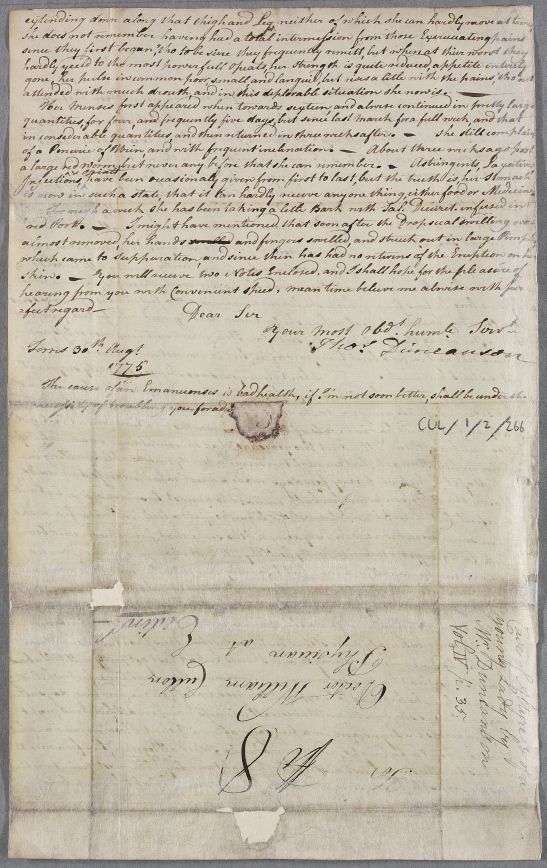 extending down along that thigh and Leg, neither of which she can hardly move at times
She does not remember having had a total intermission from those Excruciating pains
since they first began, tho to be sure they frequently remitt but when at their worst they
hardly yeild to the most powerfull Opiats, her strength is quite reduced, appetite entirely
gone, her pulse in common poor, small and languid, but rises a little with the pains, tho not
attended with much drouth, and in this deplorable situation she now is. —
Her Menses first appeared when towards sixteen and always continued in pretty large
quantities, for four, and frequently five days, but since last March for a full week, and that
in considerable quantities and then returned in three weeks after. — She still complains
of a of Urin and with frequent inclination. — About three weeks ago past
a large red Worm, but never any before that she can remember. — Astringents, Laxatives
Injections, & Opiats have been occasionally given from first to last, but the truth is, her Stomach
is now in such a state, that it can hardly receive any thing either food or Medicine
For a week she has been taking a little Bark with Sal: Diuret. infused in
red Port. — I might have mentioned that soon after the Dropsical swelling was
almost removed, her hands and fingers swelled, and struck out in large Pimples
which came to Suppuration, and since then has had no returns of the Eruption on her
Skin. — You will receive two Notes Enclosed, and I shall hope for the pleasure of
hearing from you with Convenient Speed, mean time believe me always with per
fect regard —
Dear Sir
Your most Obdt. humle. Servt.
Thos. Duncanson
Forres 30th. Augt.
1776
The cause of an Emanuenses is bad health, if I'm not soon better, shall be under the
necessity of troubling you for
CUL/1/2/266
Case of
young Lady by
Mr. Duncanson
Vol. IV p. 35.
To
No 8
Doctor William Cullen
Physician at
Edinr.